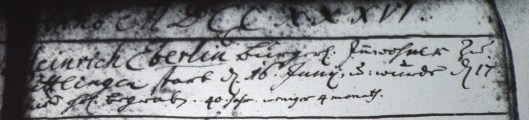 Anno MDCCXXXVI.
Heinrich Eberlin Burger. Inwohner Zu
Ettlingen starb d 16. Junij, u. wurde d 17
begraben. 40 Jahr weniger 4 month.